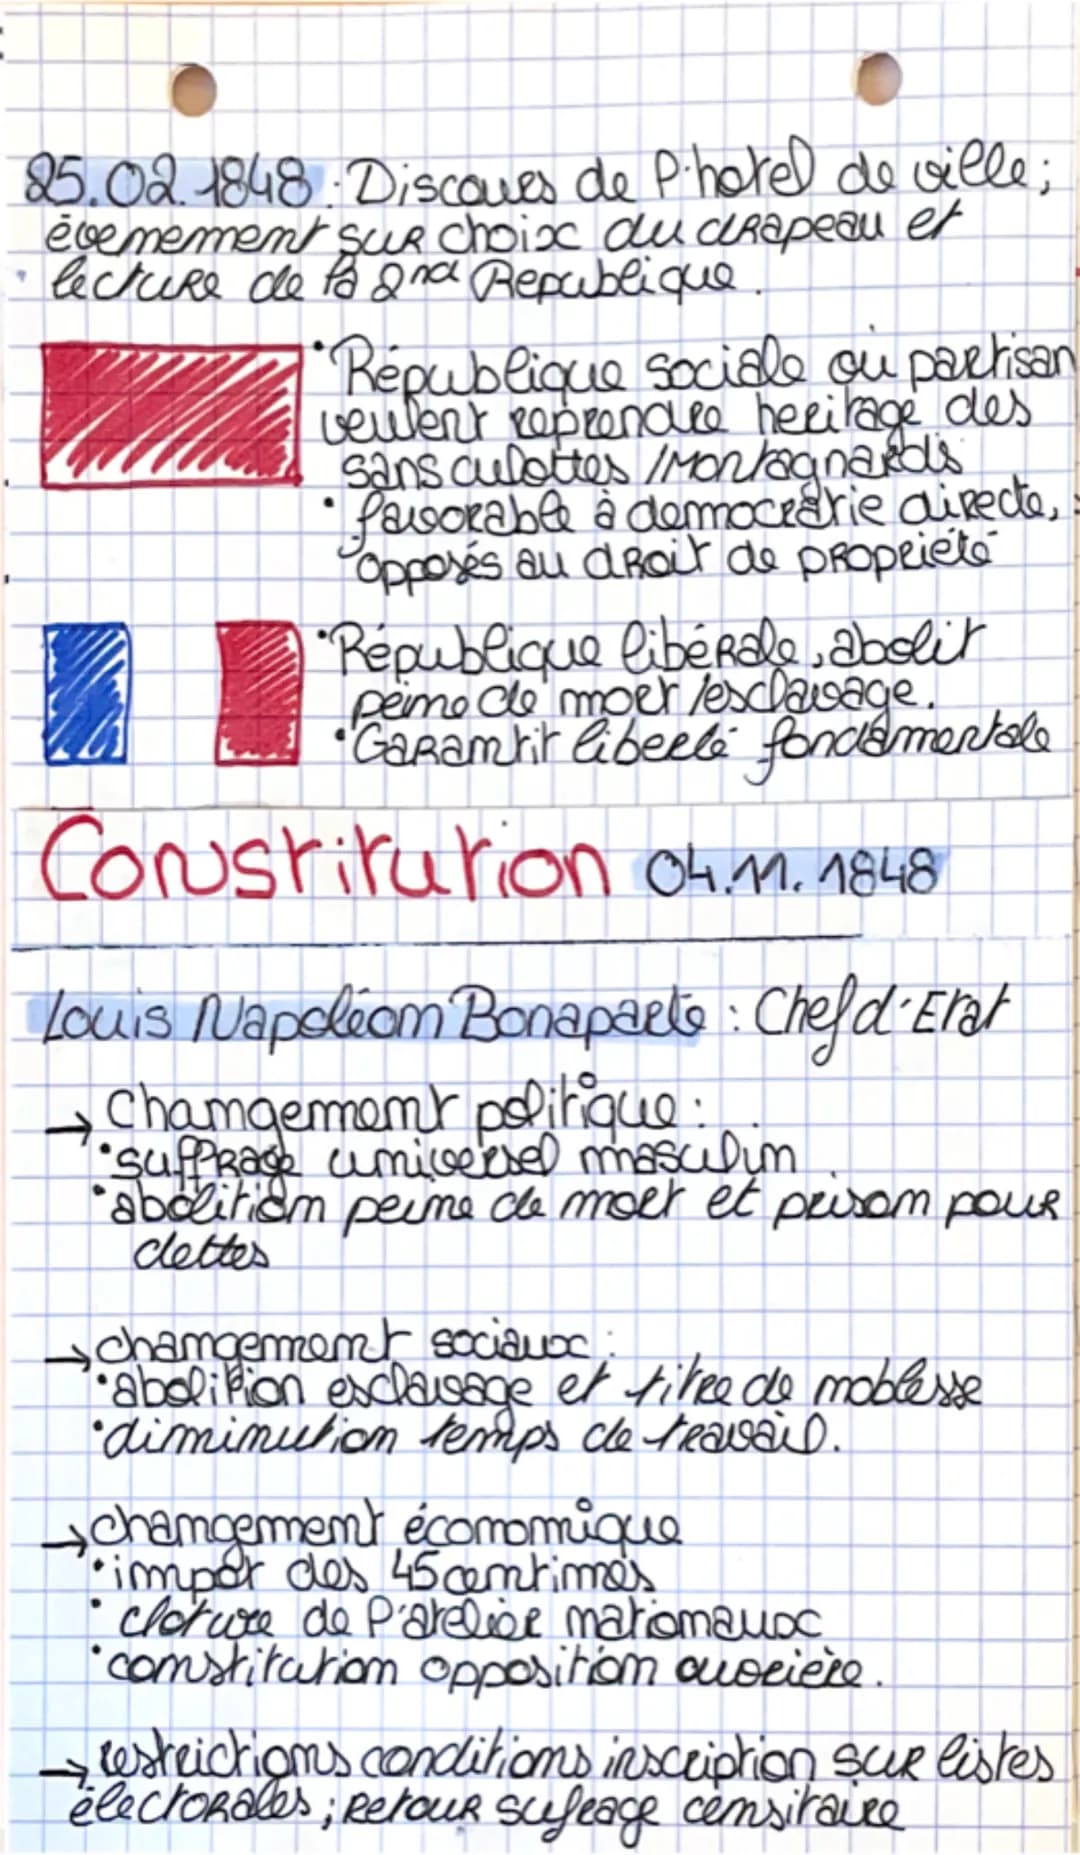 25.02.1848 : Discours de l'hotel de ville;
évenemement sur choix du drapeau et
lecture de la 2nd Republique.
• République sociale où partisan
veulent reprendre heritage des
sans culottes / Montagnards
• favorable à democratie directe,
opposés au droit de propriété
• République libérale, abolit
peine de mort / esclavage.
• Garantit liberté fondamentale
Constitution 04.11.1848
Louis Napoléon Bonaparte : Chef d'Etat
→ Changement politique :
• suffrage universel masculin
• abolition peine de mort et prison pour
dettes
→ changement sociaux :
• abolition esclavage et titre de noblesse
• diminution temps de travail.
→ changement économique
• impôt des 45 centimes
• cloture de l'atelier nationaux
• constitution opposition ouvrière.
→ restrictions conditions inscription sur listes
électorales ; retour sufrage censitaire